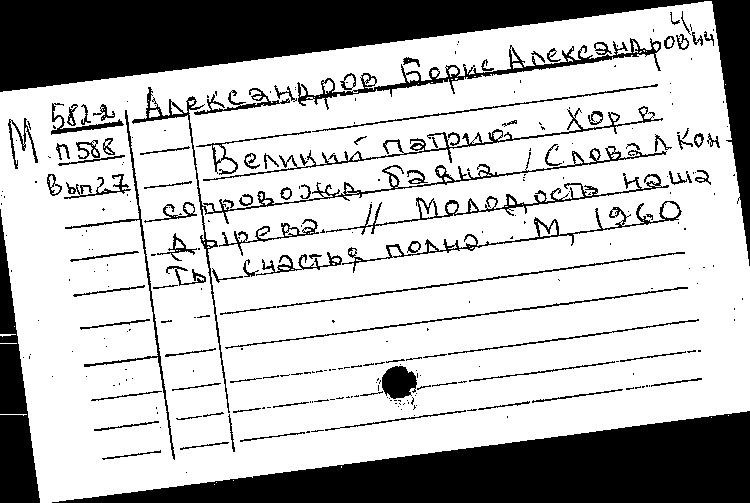 ч
582-2 Александров, Борис Александрович
М П588
Вып27
Великий патриот. Хор в
сопровожд. баяна / Слова Л Кон-
дырева // Молодость наша
ты счастья полна. М, 1960